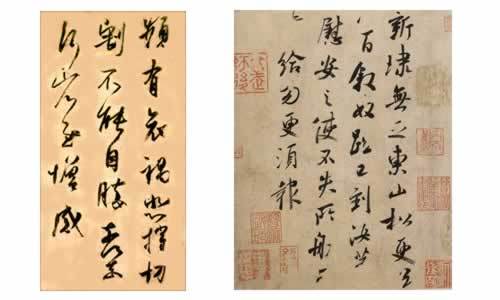 頻有哀禍悲摧切
割不能自勝奈何奈
何省慰增感
新埭無之東山松更
百敘奴 已到汝
慰安之使不失所
給勿更須報